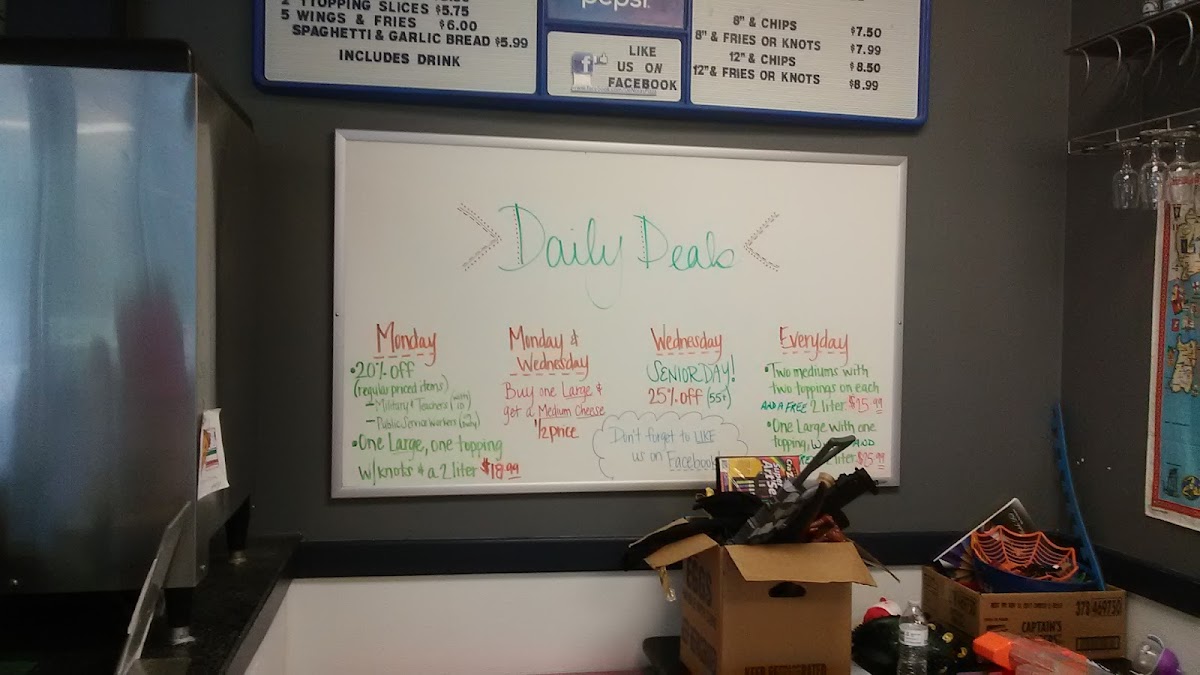 2 TTOPPING SLICES $5.75
5 WINGS & FRIES $6.00
SPAGHETTI & GARLIC BREAD $5.99
INCLUDES DRINK
pepsi
LIKE
US ON
FACEBOOK
8" & CHIPS $7.50
8" & FRIES OR KNOTS $7.99
12" & CHIPS $8.50
12" & FRIES OR KNOTS $8.99
Daily Deals
Monday
• 20% OFF
(regular priced items)
- Military & Teachers (with ID)
- Public Service Workers
• One Large, one topping
w/knots & a 2 liter $18.99
Monday &
Wednesday
Buy one Large &
get a Medium Cheese
1/2 price
Wednesday
SENIOR DAY!
25% OFF (55+)
Don't forget to LIKE
us on Facebook!
Everyday
• Two mediums with
two toppings on each
AND A FREE 2 liter $25.99
• One Large with one
topping, AND
2 liter $25.99
378 469730
CAPTAIN'S
KEEP REFRIGERATED